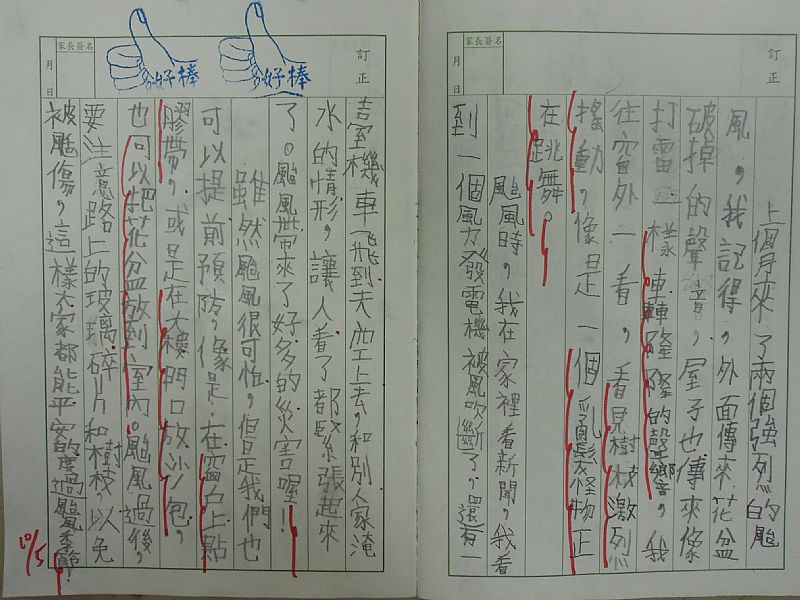 訂正
家長簽名
月 日
上個月來了兩個強烈的颱
風，我記得，外面傳來花盆
破掉的聲音，屋子也傳來像
打雷一樣轟轟隆隆的聲響，我
往窗外一看，看見樹枝激烈
搖動，像是一個亂髮怪物正
在跳舞。
颱風時，我在家裡看新聞，我看
到一個風力發電機被風吹斷了，還有一
訂正
家長簽名
月 日
分好棒
分好棒
吉室機車飛到天空上去，和別人家淹
水的情形，讓人看了都緊張起來
了。颱風帶來了好多的災害喔！
雖然颱風很可怕，但是我們也
可以提前預防，像是：在窗戶上黏
膠帶，或是在大樓門口放沙包，
也可以把花盆放到室內。颱風過後，
要注意路上的玻璃碎片和樹枝，以免
被颱傷，這樣大家都能平安的度過颱風季節！
10/5